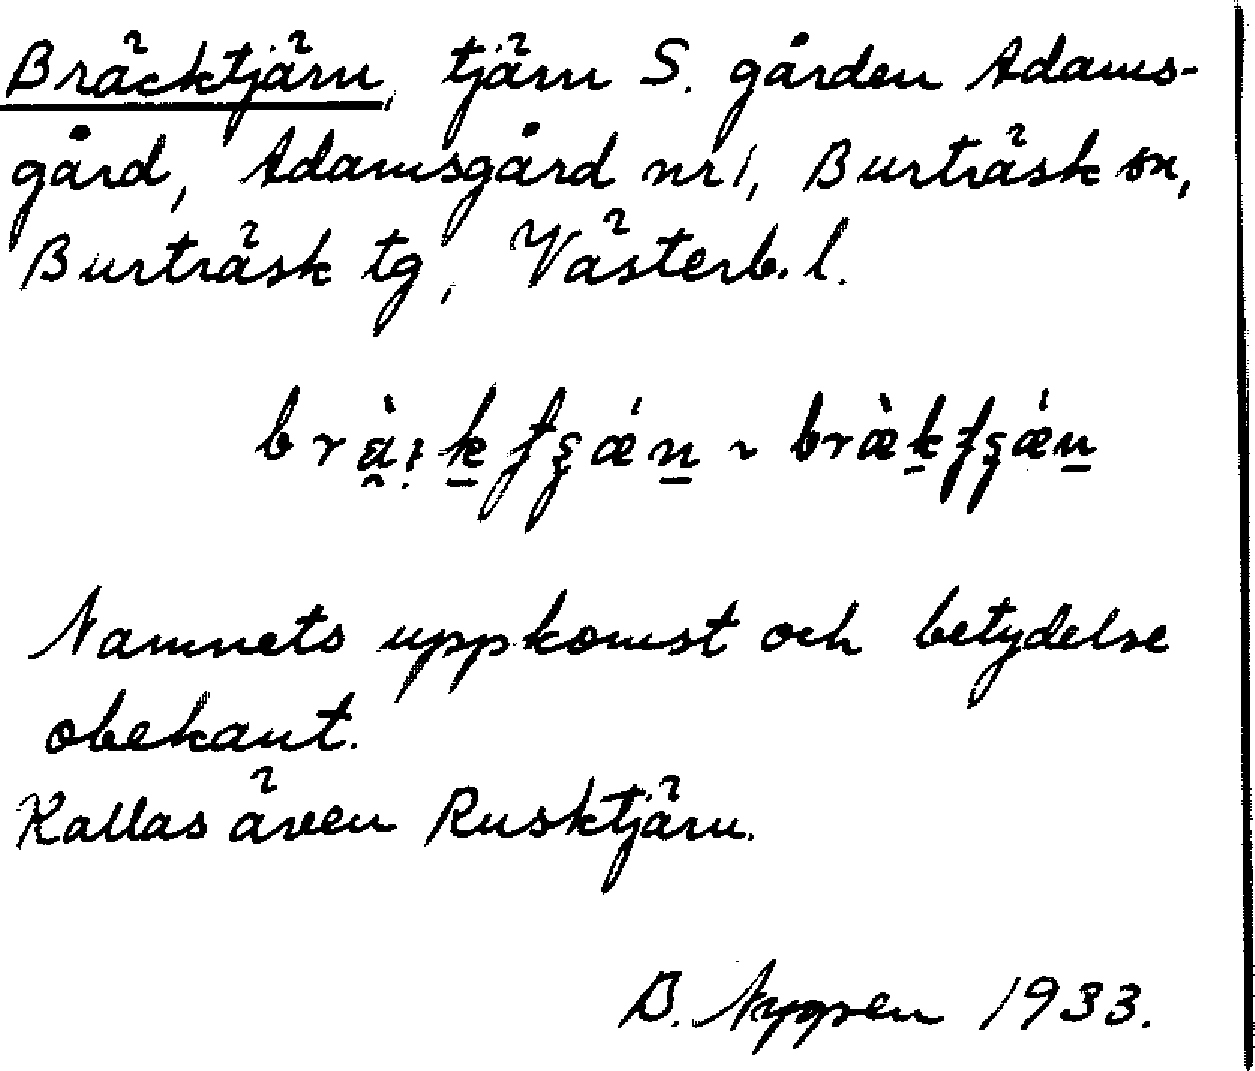 Bräcktjärn, tjärn S. gården Adams-
gård, Adamsgård nr 1, Burträsk sn,
Burträsk tg, Västerb. l.
Namnets uppkomst och betydelse
obekant.
Kallas även Rusktjärn.
B. Nygren 1933.